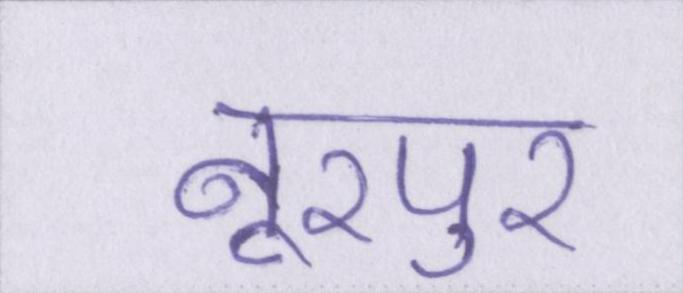 नूरपुर